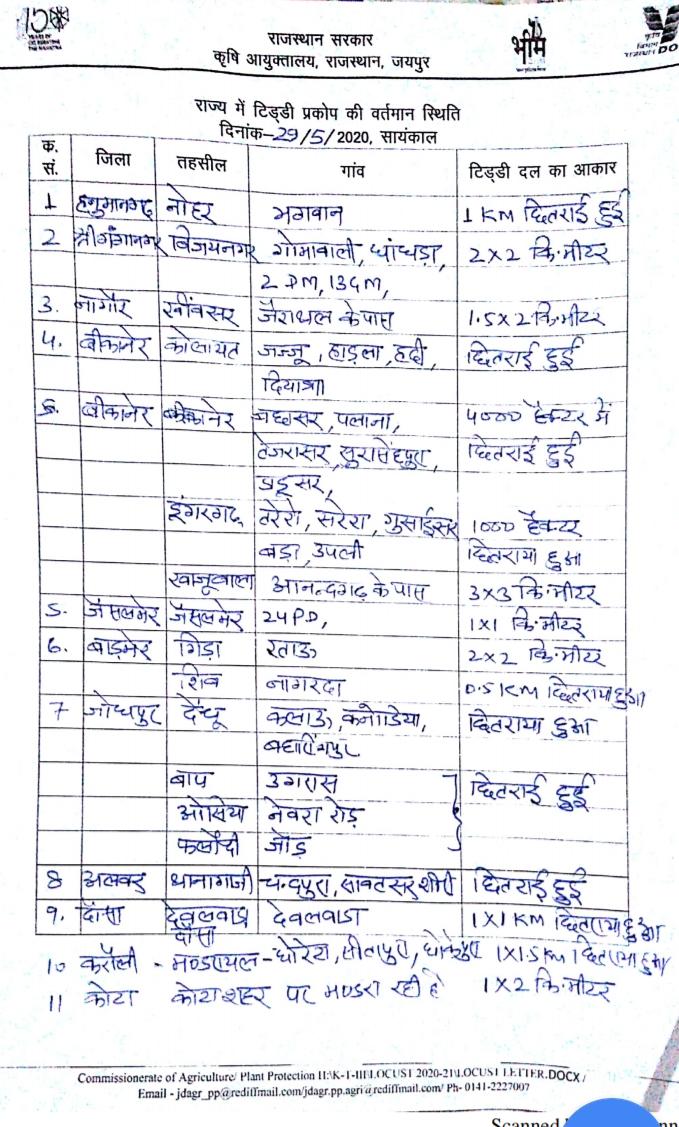 राजस्थान सरकार
भीम
कृषि आयुक्तालय, राजस्थान, जयपुर
राज्य में टिड्डी प्रकोप की वर्तमान स्थिति
दिनांक-29/5/2020, सायंकाल
क. सं. जिला तहसील गांव टिड्डी दल का आकार
1 हनुमानगढ नोहर भगवान 1 KM छितराई हुई
2 श्रीगंगानगर विजयनगर गोमावाली, 2x2 कि.मीटर
2 DM, 13GM,
3. नागौर खींवसर के पास 1.5x2 कि.मीटर
4. बीकानेर कोलायत जज्जू, हाड़ला, हदी, छितराई हुई
दियात्रा
बीकानेर बीकानेर पलाना, 4000 हैक्टर में
तेजरासर, छितराई हुई
डूंगरगढ, सरेरा, गुसाईसर 1000 हैक्टर
बड़ा, उपली छितराया हुआ
खाजूवाला आनन्दगढ के पास 3x3 कि.मीटर
5. जैसलमेर जैसलमेर 24PD, 1x1 कि.मीटर
6. बाड़मेर गिड़ा रताऊ 2x2 कि.मीटर
शिव नागरदा 0.5 KM छितराया हुआ
7 जोधपुर देंचू कलाऊ, कनोडिया, छितराया हुआ
बाप उगरास छितराई हुई
ओसिया नेवरा रोड़
फलोदी जोड़
8 अलवर थानागाजी चन्दपुरा, छितराई हुई
9. दौसा देवलवाडा 1x1 KM छितराया हुआ
दौसा
10 करौली - मण्डरायल - धोरेटा, सीतापुरा, 1x1.5 KM छितराया हुआ
11 कोटा कोटा शहर पर मण्डरा रही है 1x2 कि.मीटर
Commissionerate of Agriculture/ Plant Protection II\K-1-III\LOCUST 2020-21\LOCUST LETTER.DOCX /
Email - jdagr_pp@rediffmail.com/jdagr.pp.agri@rediffmail.com/ Ph- 0141-2227007
Scanned